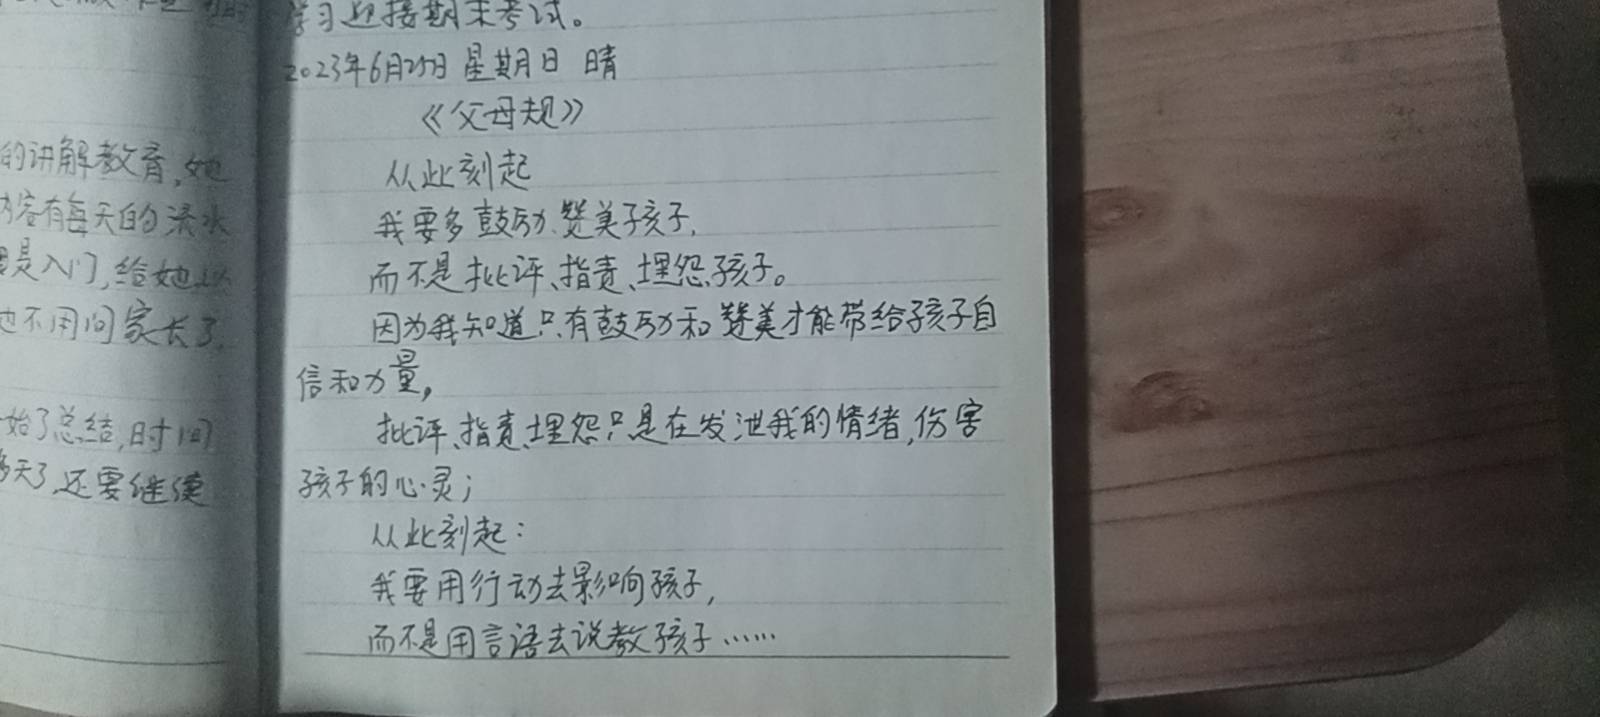 的讲解教育,她
内容有每天的流水
是入门,给她以
也不用问家长了,
始了总结,时间
多天了,还要继续
学习迎接期末考试。
2023年6月25日 星期日 晴
《父母规》
从此刻起
我要多鼓励、赞美孩子,
而不是批评、指责、埋怨孩子。
因为我知道只有鼓励和赞美才能带给孩子自
信和力量,
批评、指责、埋怨只是在发泄我的情绪,伤害
孩子的心灵;
从此刻起:
我要用行动去影响孩子,
而不是用言语去说教孩子……